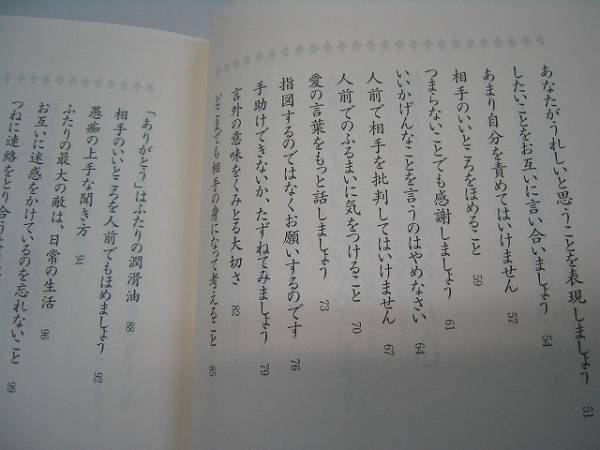 あなたがうれしいと思うことを表現しましょう 51
したいことをお互いに言い合いましょう 54
あまり自分を責めてはいけません 57
相手のいいところをほめること 59
つまらないことでも感謝しましょう 61
いいかげんなことを言うのはやめなさい 64
人前で相手を批判してはいけません 67
人前でのふるまいに気をつけること 70
愛の言葉をもっと話しましょう 73
指図するのではなくお願いするのです 76
手助けできないか、たずねてみましょう 79
言外の意味をくみとる大切さ 82
どこまでも相手の身になって考えること 85
「ありがとう」はふたりの潤滑油 88
相手のいいところを人前でもほめましょう 92
愚痴の上手な聞き方 94
ふたりの最大の敵は、日常の生活 96
お互いに迷惑をかけているのを忘れないこと 99
つねに連絡をとり合う